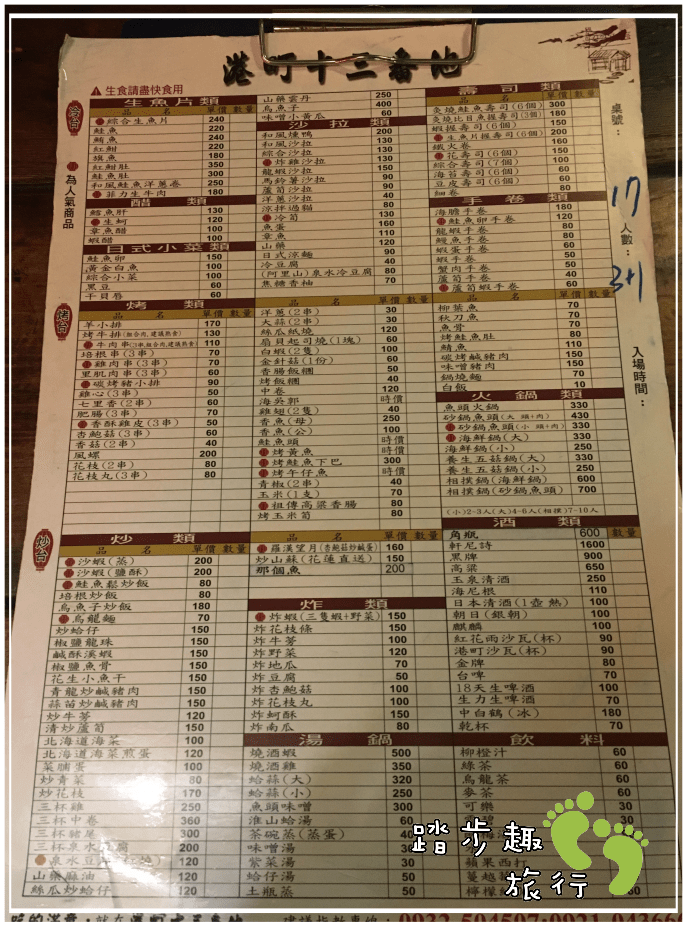 港町十三番地
⚠ 生食請盡快食用
冷台
為人氣商品
生魚片類
品名 單價 數量
綜合生魚片 240
鮭魚 220
鮪魚 240
紅魽 220
旗魚 180
紅魽肚 350
鮭魚肚 300
和風鮭魚洋蔥卷 250
菲力生牛肉 180
醋類
鱈魚肝 130
生蚵 120
章魚醋 100
蝦醋 100
日式小菜類
鮭魚卵 150
黃金白魚 100
綜合小菜 100
黑豆 60
干貝唇 60
山藥雲丹 250
烏魚子 400
味噌小黃瓜 60
沙拉類
和風燻鴨 200
和風沙拉 130
綜合沙拉 130
炸雞沙拉 130
龍蝦沙拉 150
馬鈴薯沙拉 90
蘆筍沙拉 90
洋蔥沙拉 40
涼拌過貓 80
冷筍 130
魚蛋 160
章魚 110
山藥 120
日式涼麵 90
冷豆腐 40
(阿里山)泉水冷豆腐 80
焦糖香柚 70
壽司類
品名 單價 數量
炙燒鮭魚壽司(6個) 300
炙燒比目魚握壽司(3個) 180
蝦握壽司(6個)
生魚片握壽司(6個) 200
鐵火卷 160
花壽司(6個) 150
綜合壽司(7個) 100
海苔壽司(6個) 60
豆皮壽司(6個) 60
細卷 80
手卷類
海膽手卷 180
鮭魚卵手卷 120
龍蝦手卷 80
鰻魚手卷 80
蝦蛋手卷 60
蝦手卷 50
蟹肉手卷 50
蘆筍手卷 40
蘆筍蝦手卷 60
桌號：
17
人數：
3+1
入場時間：
烤台
烤類
品名 單價 數量
羊小排 170
烤牛排(組合肉,建議熟食) 130
牛肉串(3串,組合肉,建議熟食) 110
培根串(3串) 70
雞肉串(3串) 70
里肌肉串(3串) 60
碳烤豬小排 90
雞心(3串) 50
七里香(2串) 60
肥腸(3串) 70
香酥雞皮(3串) 50
杏鮑菇(3串) 60
香菇(2串) 40
風螺 200
花枝(2串) 80
花枝丸(3串) 80
品名 單價 數量
洋蔥(2串) 30
大蒜(2串) 30
絲瓜紙燒 120
扇貝起司燒(1塊) 60
白蝦(2隻) 100
金針菇(1份) 60
香腸飯糰 50
烤飯糰 40
中卷 120
海吳郭 時價
雞翅(2隻) 40
香魚(母) 250
香魚(公) 100
鮭魚頭 時價
烤黃魚 時價
烤鮭魚下巴 300
烤午仔魚 時價
青椒(2串) 40
玉米(1支) 70
祖傳高粱香腸 80
烤玉米筍 80
品名 單價 數量
柳葉魚 70
秋刀魚 70
魚骨 70
烤鮭魚肚 110
鯖魚 110
碳烤鹹豬肉 150
味噌豬肉 150
鍋燒麵 70
白飯 10
火鍋類
魚頭火鍋 330
砂鍋魚頭(大 頭+肉) 430
砂鍋魚頭(小 頭+肉) 330
海鮮鍋(大) 330
海鮮鍋(小) 250
養生五菇鍋(大) 330
養生五菇鍋(小) 250
相撲鍋(海鮮鍋) 600
相撲鍋(砂鍋魚頭) 700
(小)2-3人(大)4-6人(相撲)7-10人
炒台
炒類
品名 單價 數量
沙蝦(蒸) 200
沙蝦(鹽酥) 200
鮭魚鬆炒飯 80
培根炒飯 80
烏魚子炒飯 180
烏龍麵 70
炒蛤仔 150
椒鹽龍珠 150
鹹酥溪蝦 150
椒鹽魚骨 100
花生小魚干 150
青龍炒鹹豬肉 150
蒜苗炒鹹豬肉 150
炒牛蒡 120
清炒蘆筍 150
北海道海菜 100
北海道海菜煎蛋 120
菜脯蛋 100
炒青菜 80
炒花枝 170
三杯雞 250
三杯中卷 360
三杯豬尾 300
三杯泉水豆腐 200
泉水豆 120
山藥麻油 120
絲瓜炒蛤仔 120
品名 單價 數量
羅漢望月(杏鮑菇炒鹹蛋) 160
炒山蘇(花蓮直送) 150
那個魚 200
炸類
炸蝦(三隻蝦+野菜) 150
炸花枝條 150
炸牛蒡 100
炸野菜 120
炸地瓜 70
炸豆腐 50
炸杏鮑菇 100
炸花枝丸 100
炸蚵酥 150
炸南瓜 80
湯鍋
燒酒蝦 500
燒酒雞 350
蛤蒜(大) 320
蛤蒜(小) 250
魚頭味噌 300
淮山蛤湯 60
茶碗蒸(蒸蛋) 40
味噌湯 30
紫菜湯 30
蛤仔湯 60
土瓶蒸 50
酒類
角瓶 600 數量
軒尼詩 1600
黑牌 900
高粱 650
玉泉清酒 250
海尼根 110
日本清酒(1壺 熱) 100
朝日(銀朝) 100
麒麟 100
紅花雨沙瓦(杯) 90
港町沙瓦(杯) 90
金牌 80
台啤 70
18天生啤酒 100
生力生啤酒 70
中白鶴(冰) 180
乾杯 70
飲料
柳橙汁 60
綠茶 60
烏龍茶 60
麥茶 60
可樂 30
30
蘋果西打
蔓越
檸檬
踏步趣
旅行